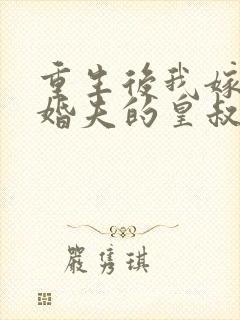 重生後我嫁
婚夫的皇叔
嚴隽琪